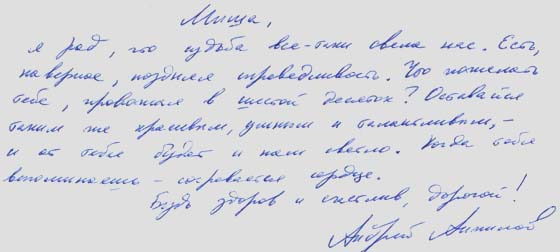 Миша,
я рад, что судьба все-таки свела нас. Есть,
наверное, поздняя справедливость. Что пожелать
тебе, провожая в шестой десяток? Оставайся
таким же красивым, умным и талантливым, –
и от тебя будет и нам светло. Когда тебя
вспоминаешь – согревается сердце.
Будь здоров и счастлив, дорогой!
Андрей